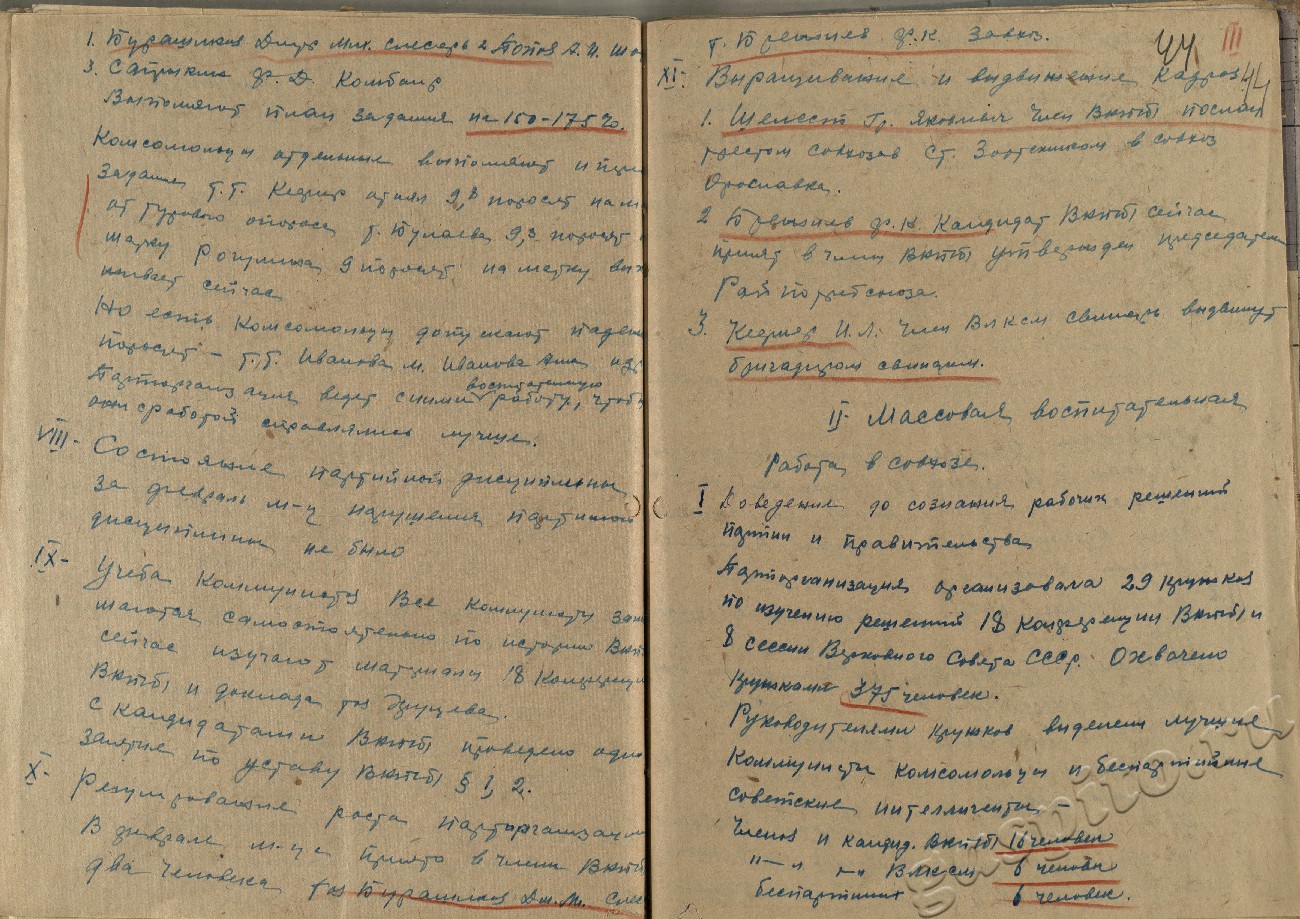 1. Бурашников Дмитр Мих. слесарь 2 Попов А. И.
3. Сапрыкин Ф. Д. Комбайнер
Выполняют план задания на 150-175%.
Комсомольцы отдельные выполняют и
задания т.т. Кернер отнял 9,8 поросят на
от турового опороса т. Булаева 9,3 поросят
матку Рогулина 9 поросят на матку
сейчас
Но есть комсомольцы допускают
поросят - т.т. Иванова М. Иванова Анна
Парторганизация ведет с ними воспитательную работу, чтобы
они с работой справлялись лучше.
VIII- Состояние партийной дисциплины
за февраль м-ц нарушения партийной
дисциплины не было
IX- Учеба коммунистов Все коммунисты
маются самостоятельно по истории ВКП
сейчас изучают материалы 18 Конференции
ВКП(б) и доклада тов
С кандидатами ВКП(б) проведено одно
занятие по уставу ВКП(б) § 1, 2.
X- Регулирование роста парторганизации
В феврале м-це принято в члены ВКП(б)
два человека тов Бурашников Дм. Ми.
т. Ф. К. Завхоз.
44 III
XI- Выращивание и выдвижение кадров 44
1. Шелест Гр. Яковлевич Член ВКП(б) послан
трестом совхозов Ст. Зоотехником в совхоз
2 Ф. К. Кандидат ВКП(б) сейчас
принят в члены ВКП(б) утвержден председателем
Райпотребсоюза.
3. Кернер И. Л. Член ВЛКСМ свинарь выдвинут
бригадиром свинарн.
II- Массовая воспитательная
Работа в совхозе.
I Доведение до сознания рабочих решений
партии и правительства
Парторганизация организовала 29 кружков
по изучению решений 18 Конференции ВКП(б) и
8 сессии Верховного Совета СССР. Охвачено
кружками 375 человек.
Руководителями кружков выделены лучшие
Коммунисты комсомольцы и беспартийные
советские интеллигенты -
Членов и кандид. ВКП(б) 16 человек
"— " —" ВЛКСМ 6 человек
беспартийных 6 человек.
gaspito.ru